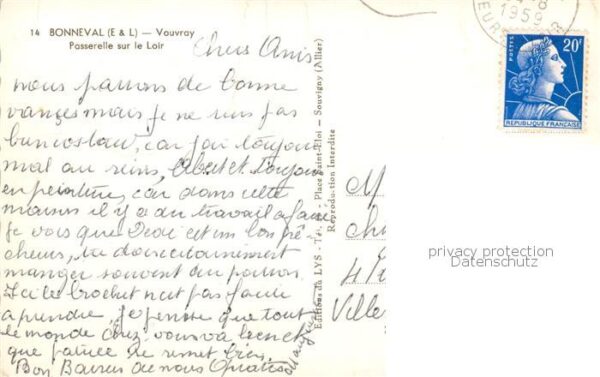 14 BONNEVAL (E & L) — Vouvray
Passerelle sur le Loir
Chers Amis
nous passons de bonne
vances mais je ne suis pas
bien costaud, car j'ai toujours
mal au reins, Albert et toujours
en peinture, car dans cette
maison il y a du travail a faire
Je vois que Dédé est un bon pê
cheur, tu dois certainement
manger souvent du poisson.
Ici le brochet n'est pas facile
a prendre, je pense que tout
le monde chez vous va bien et
que se remet bien.
Bon Baisers de nous Quatres
Editions du LYS - Place Saint-Eloi - Souvigny (Allier)
Reproduction Interdite
M
4
Ville
1959
EURE
POSTES
20F
REPUBLIQUE FRANÇAISE
privacy protection
Datenschutz